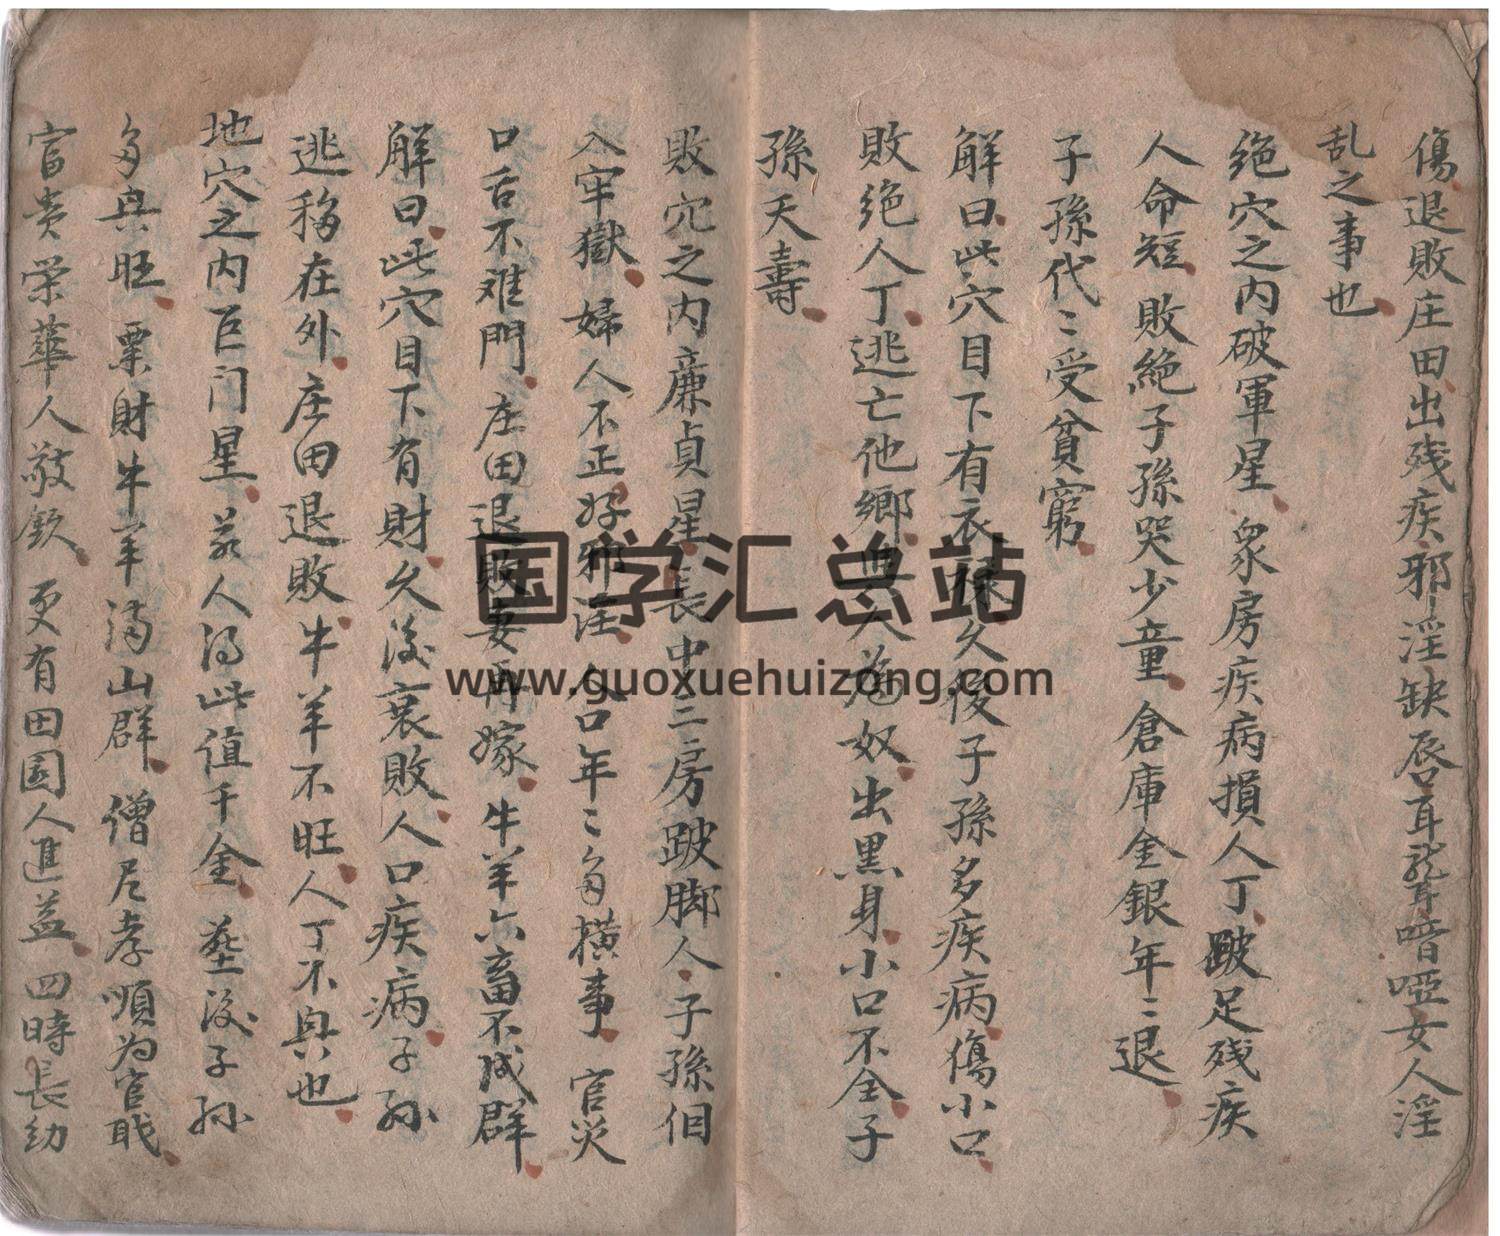 傷退敗庄田出残疾邪淫缺唇耳聾喑啞女人淫
乱之事也
绝穴之内破軍星衆房疾病損人丁跛足残疾
人命短敗絶子孫哭少童倉庫金銀年〻退
子孫代〻受貧窮
解曰此穴目下有衣禄久後子孫多疾病傷小口
敗绝人丁逃亡他鄉與人为奴出黑身小口不全子
孫夭壽
敗穴之内廉貞星長中三房跛脚人子孫徂
入牢獄婦人不正好邪淫人口年〻多横事官災
口舌不难門庄田退敗妻再嫁牛羊六畜不成群
解曰此穴目下有財久後衰敗人口疾病子孙
逃移在外庄田退敗牛羊不旺人丁不興也
地穴之内巨门星若人得此值千金塟後子孙
多興旺粟財牛羊满山群僧尼孝順为官戝
富贵荣華人敬欽更有田园人進益四時長幼
国学汇总站
www.guoxuehuizong.com